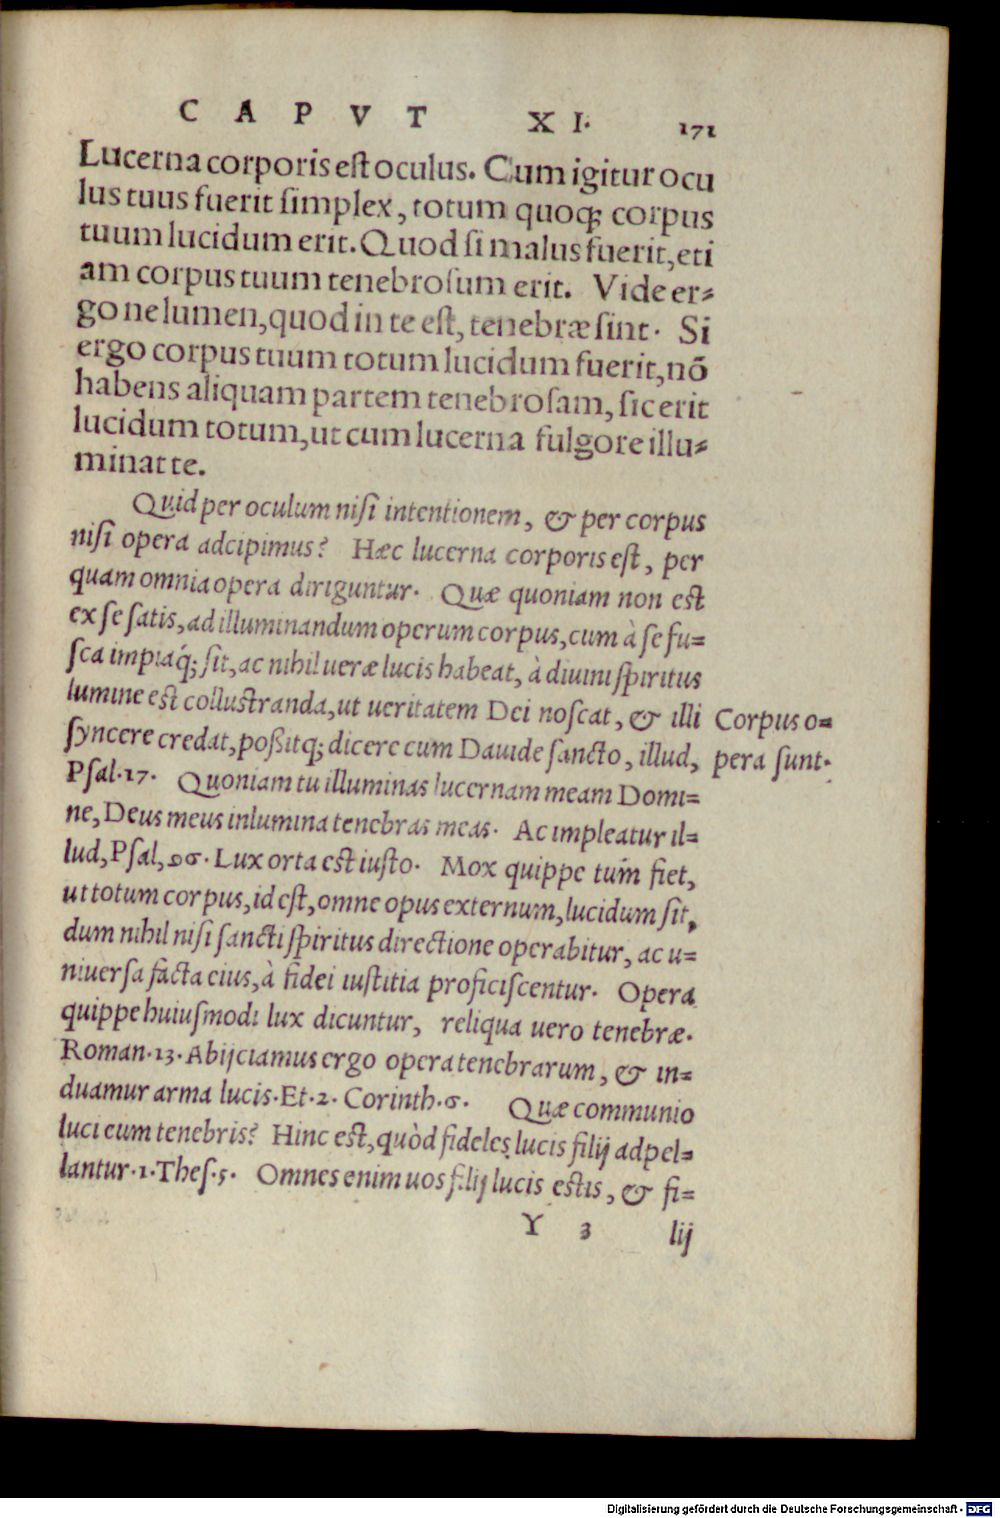 CAPVT XI. 171
Lucerna corporis est oculus. Cum igitur ocu
lus tuus fuerit simplex, totum quoq; corpus
tuum lucidum erit. Quod si malus fuerit, eti
am corpus tuum tenebrosum erit. Vide er-
go ne lumen, quod in te est, tenebræ sint. Si
ergo corpus tuum totum lucidum fuerit, nõ
habens aliquam partem tenebrosam, sic erit
lucidum totum, ut cum lucerna fulgore illu-
minat te.
Quid per oculum nisi intentionem, & per corpus
nisi opera adcipimus? Hæc lucerna corporis est, per
quam omnia opera diriguntur. Quæ quoniam non est
ex se satis, ad illuminandum operum corpus, cum à se fu-
sca impiaq́; sit, ac nihil ueræ lucis habeat, à diuini spiritus
lumine est collustranda, ut ueritatem Dei noscat, & illi
syncere credat, poßitq; dicere cum Dauide sancto, illud,
Corpus o-
pera sunt.
Psal.17. Quoniam tu illuminas lucernam meam Domi-
ne, Deus meus inlumina tenebras meas. Ac impleatur il-
lud, Psal, 96. Lux orta est iusto. Mox quippe tum fiet,
ut totum corpus, id est, omne opus externum, lucidum sit,
dum nihil nisi sancti spiritus directione operabitur, ac u-
niuersa facta eius, à fidei iustitia proficiscentur. Opera
quippe huiusmodi lux dicuntur, reliqua uero tenebræ.
Roman.13. Abijciamus ergo opera tenebrarum, & in-
duamur arma lucis. Et.2. Corinth.6. Quæ communio
luci cum tenebris? Hinc est, quòd fideles lucis filij adpel-
lantur.1.Thes.5. Omnes enim uos filij lucis estis, & fi-
Y 3 lij
Digitalisierung gefördert durch die Deutsche Forschungsgemeinschaft - DFG